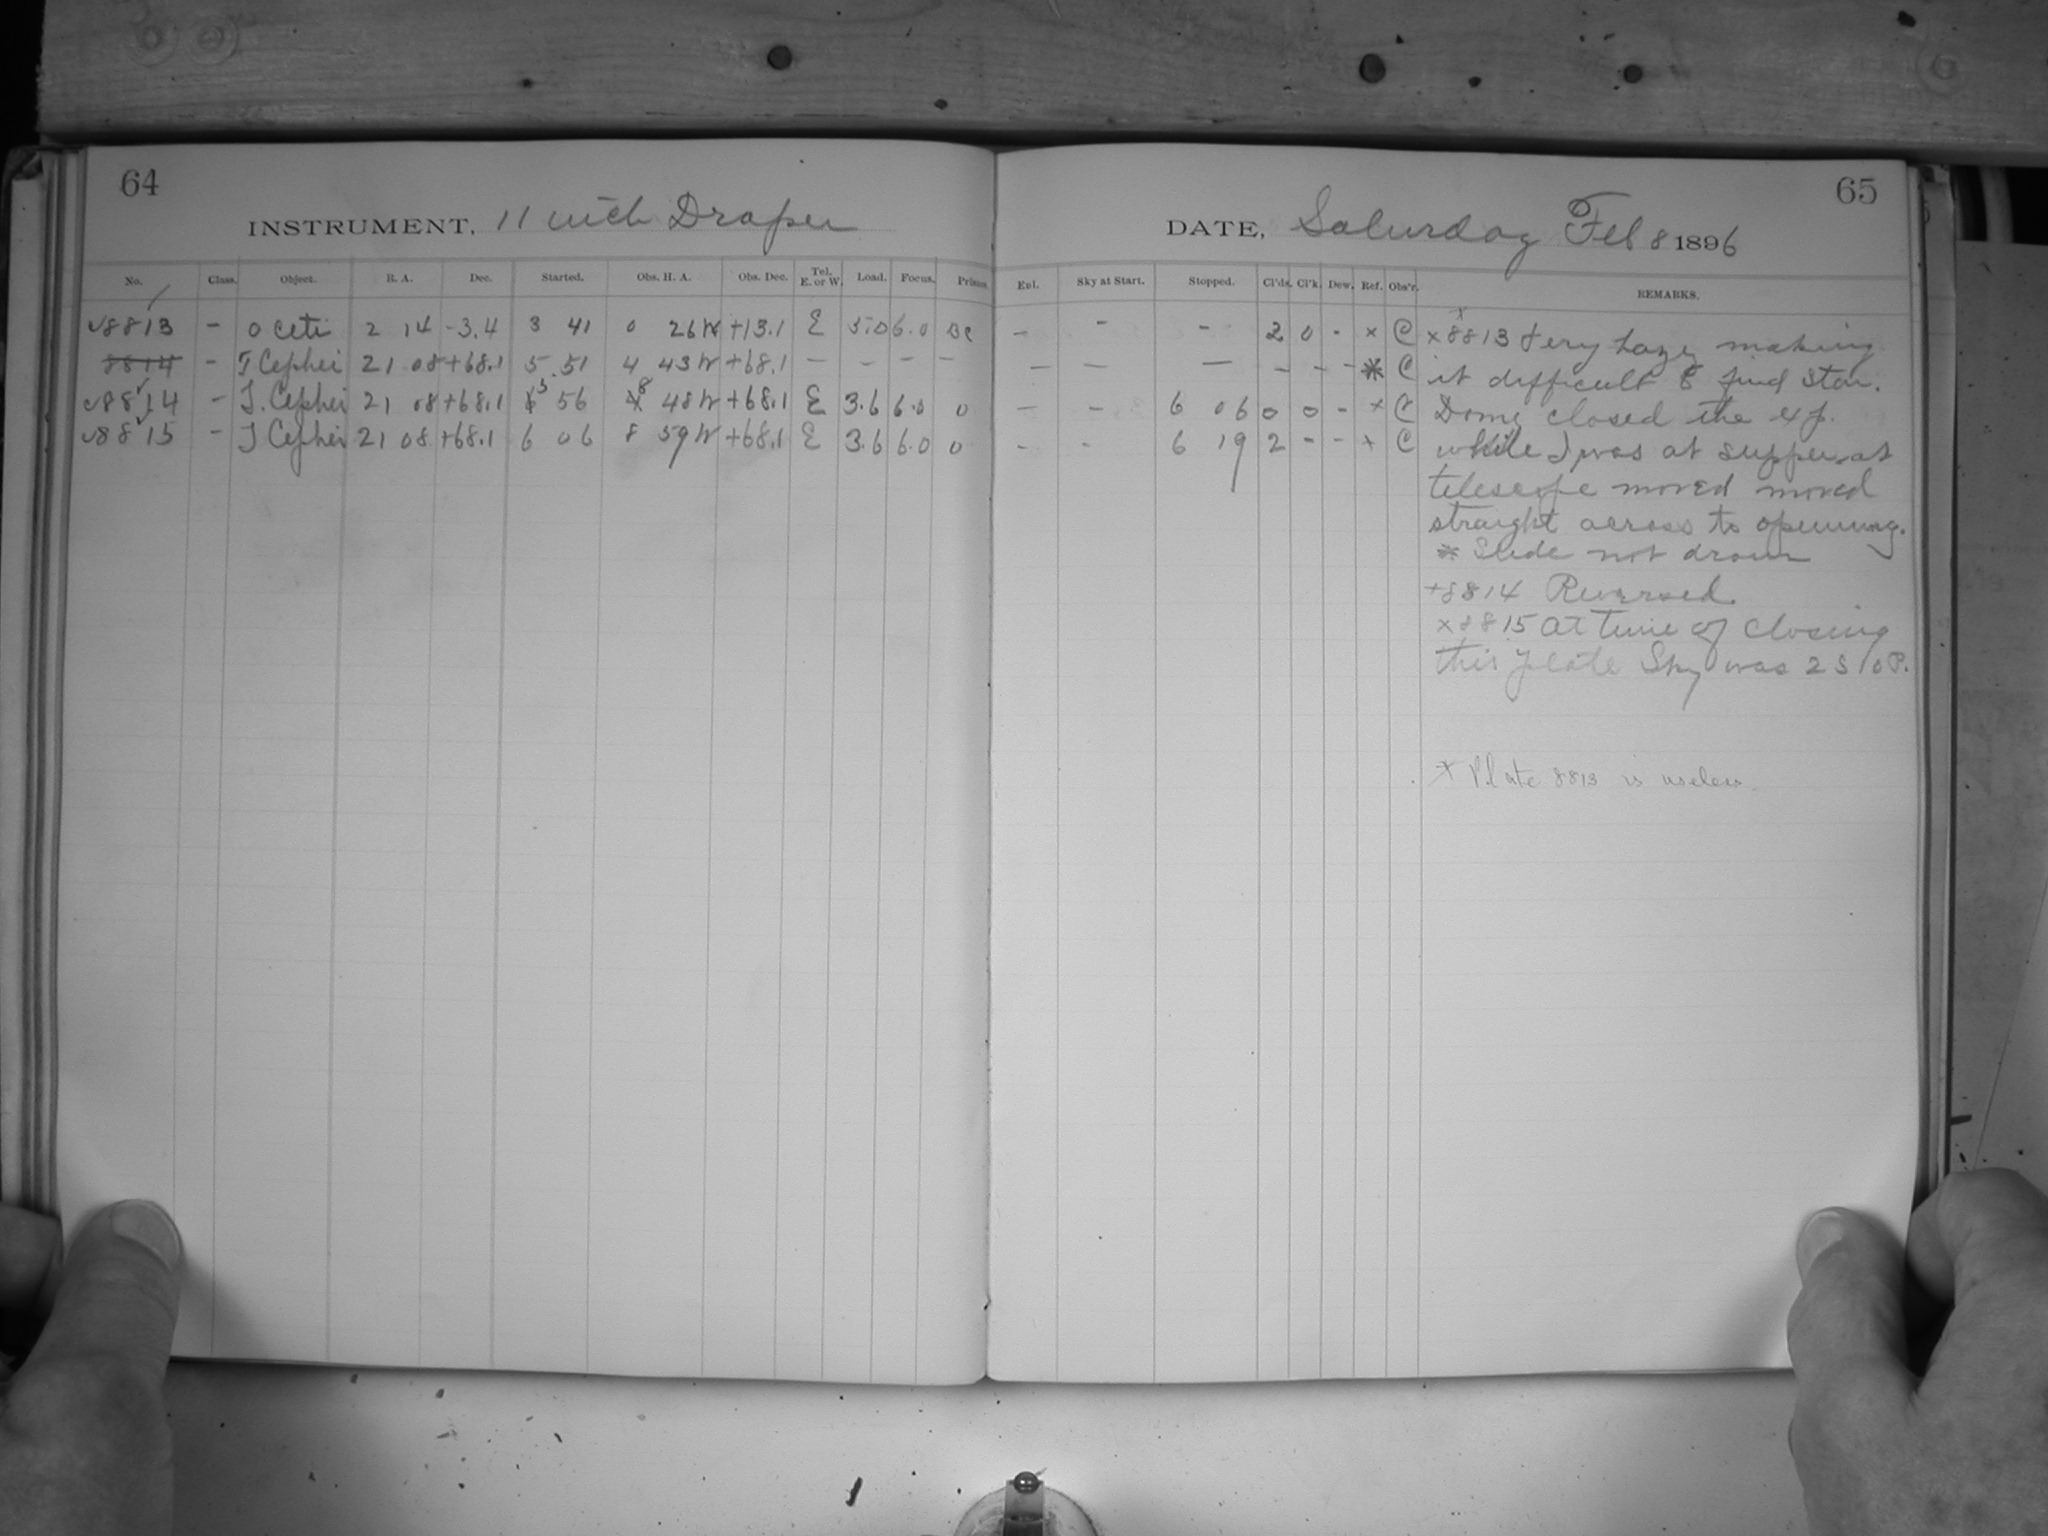 64
INSTRUMENT, 11 inch Draper
No. Class. Object. R. A. Dec. Started. Obs. H. A. Obs. Dec. Tel. E. or W. Load. Focus. Prisms
8813 - o Ceti 2 14 -3.4 3 41 0 26W +13.1 E 5.0 6.0 BC
8814 - T Cephei 21 08 +68.1 5 51 4 43W +68.1 - - - -
8814 - T. Cephei 21 08 +68.1 5 56 8 48W +68.1 E 3.6 6.0 0
8815 - T Cephei 21 08 +68.1 6 06 8 59W +68.1 E 3.6 6.0 0
65
DATE, Saturday Feb 8 1896
Enl. Sky at Start. Stopped. Cl'ds. Cl'k. Dew. Ref. Obs'r. REMARKS.
- - - 2 0 - x C x 8813 Very hazy making
- - - - - - * C it difficult to find star.
- - 6 06 0 0 - x C Dome closed the exp.
- - 6 19 2 - - x C while I was at supper as
telescope moved moved
straight across to opening.
* Slide not drawn
+8814 Reversed.
x8815 at time of closing
this plate Sky was 2 S 10 P.
x Plate 8813 is useless.